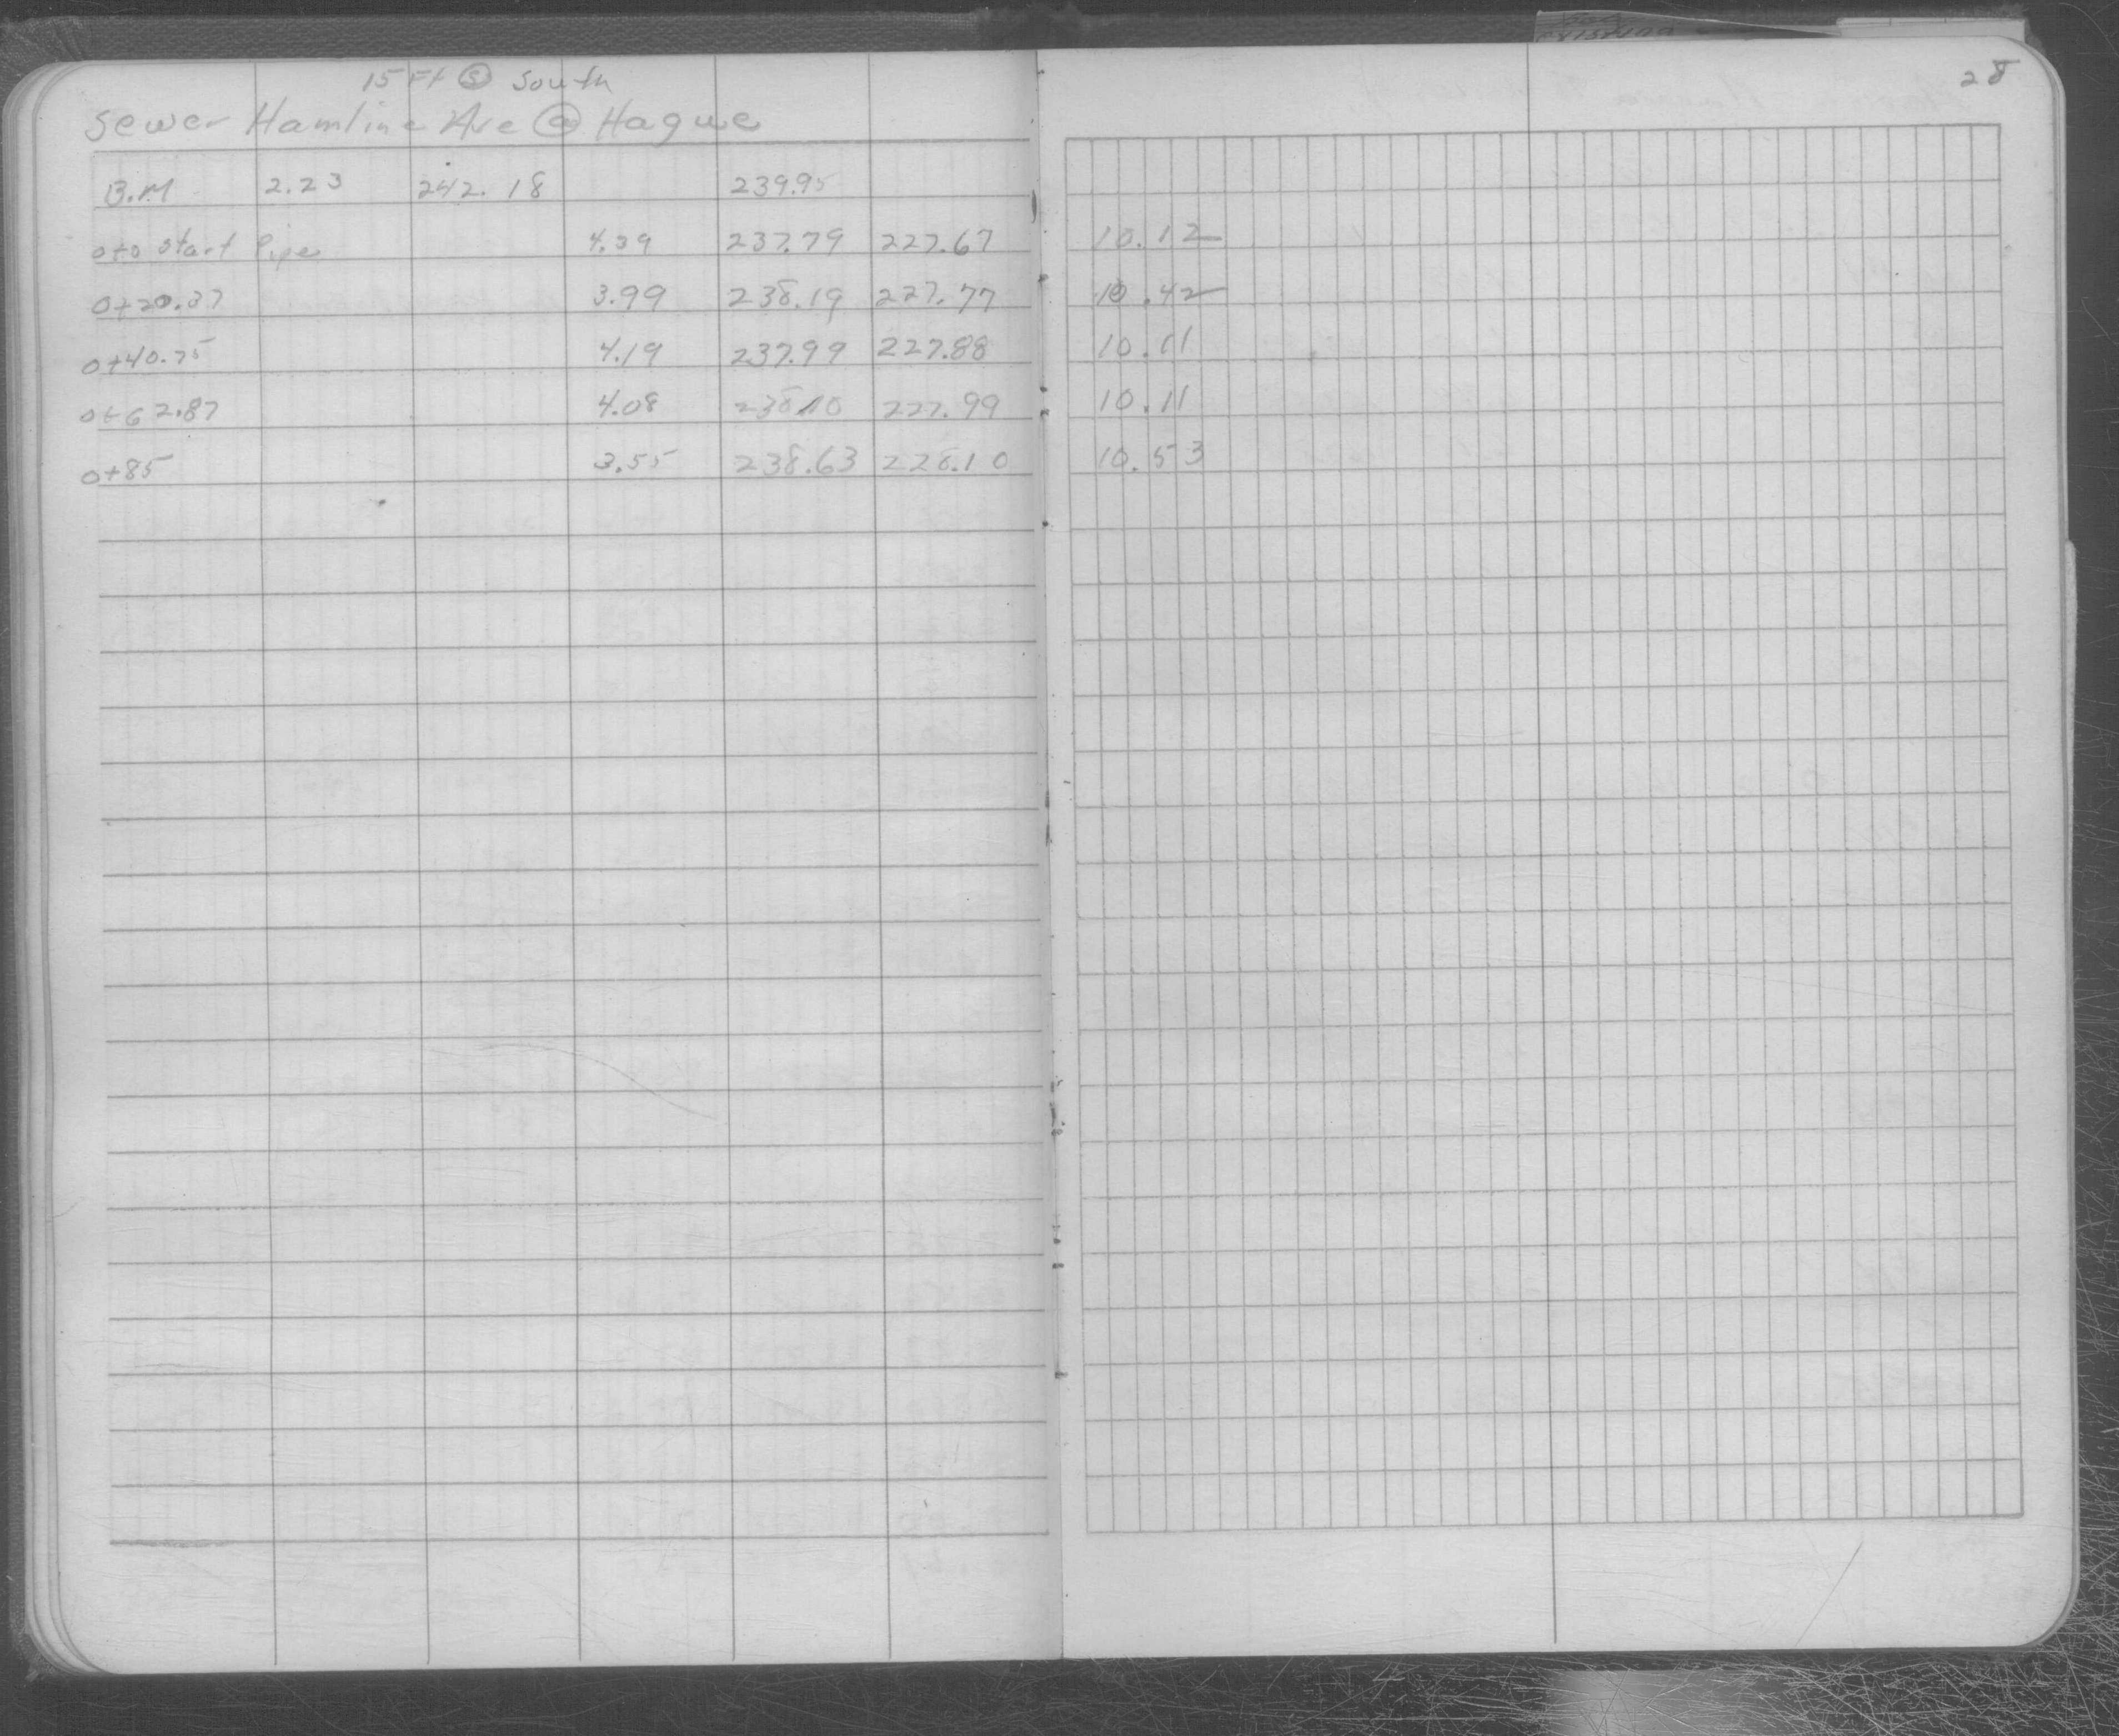 28
15 Ft Ⓢ South
Sewer Hamline Ave @ Hague
B.M 2.23 242.18 239.95
0+0 start Pipe 4.39 237.79 227.67 10.12
0+20.37 3.99 238.19 227.77 10.42
0+40.75 4.19 237.99 227.88 10.11
0+62.87 4.08 238.10 227.99 10.11
0+85 3.55 238.63 228.10 10.53